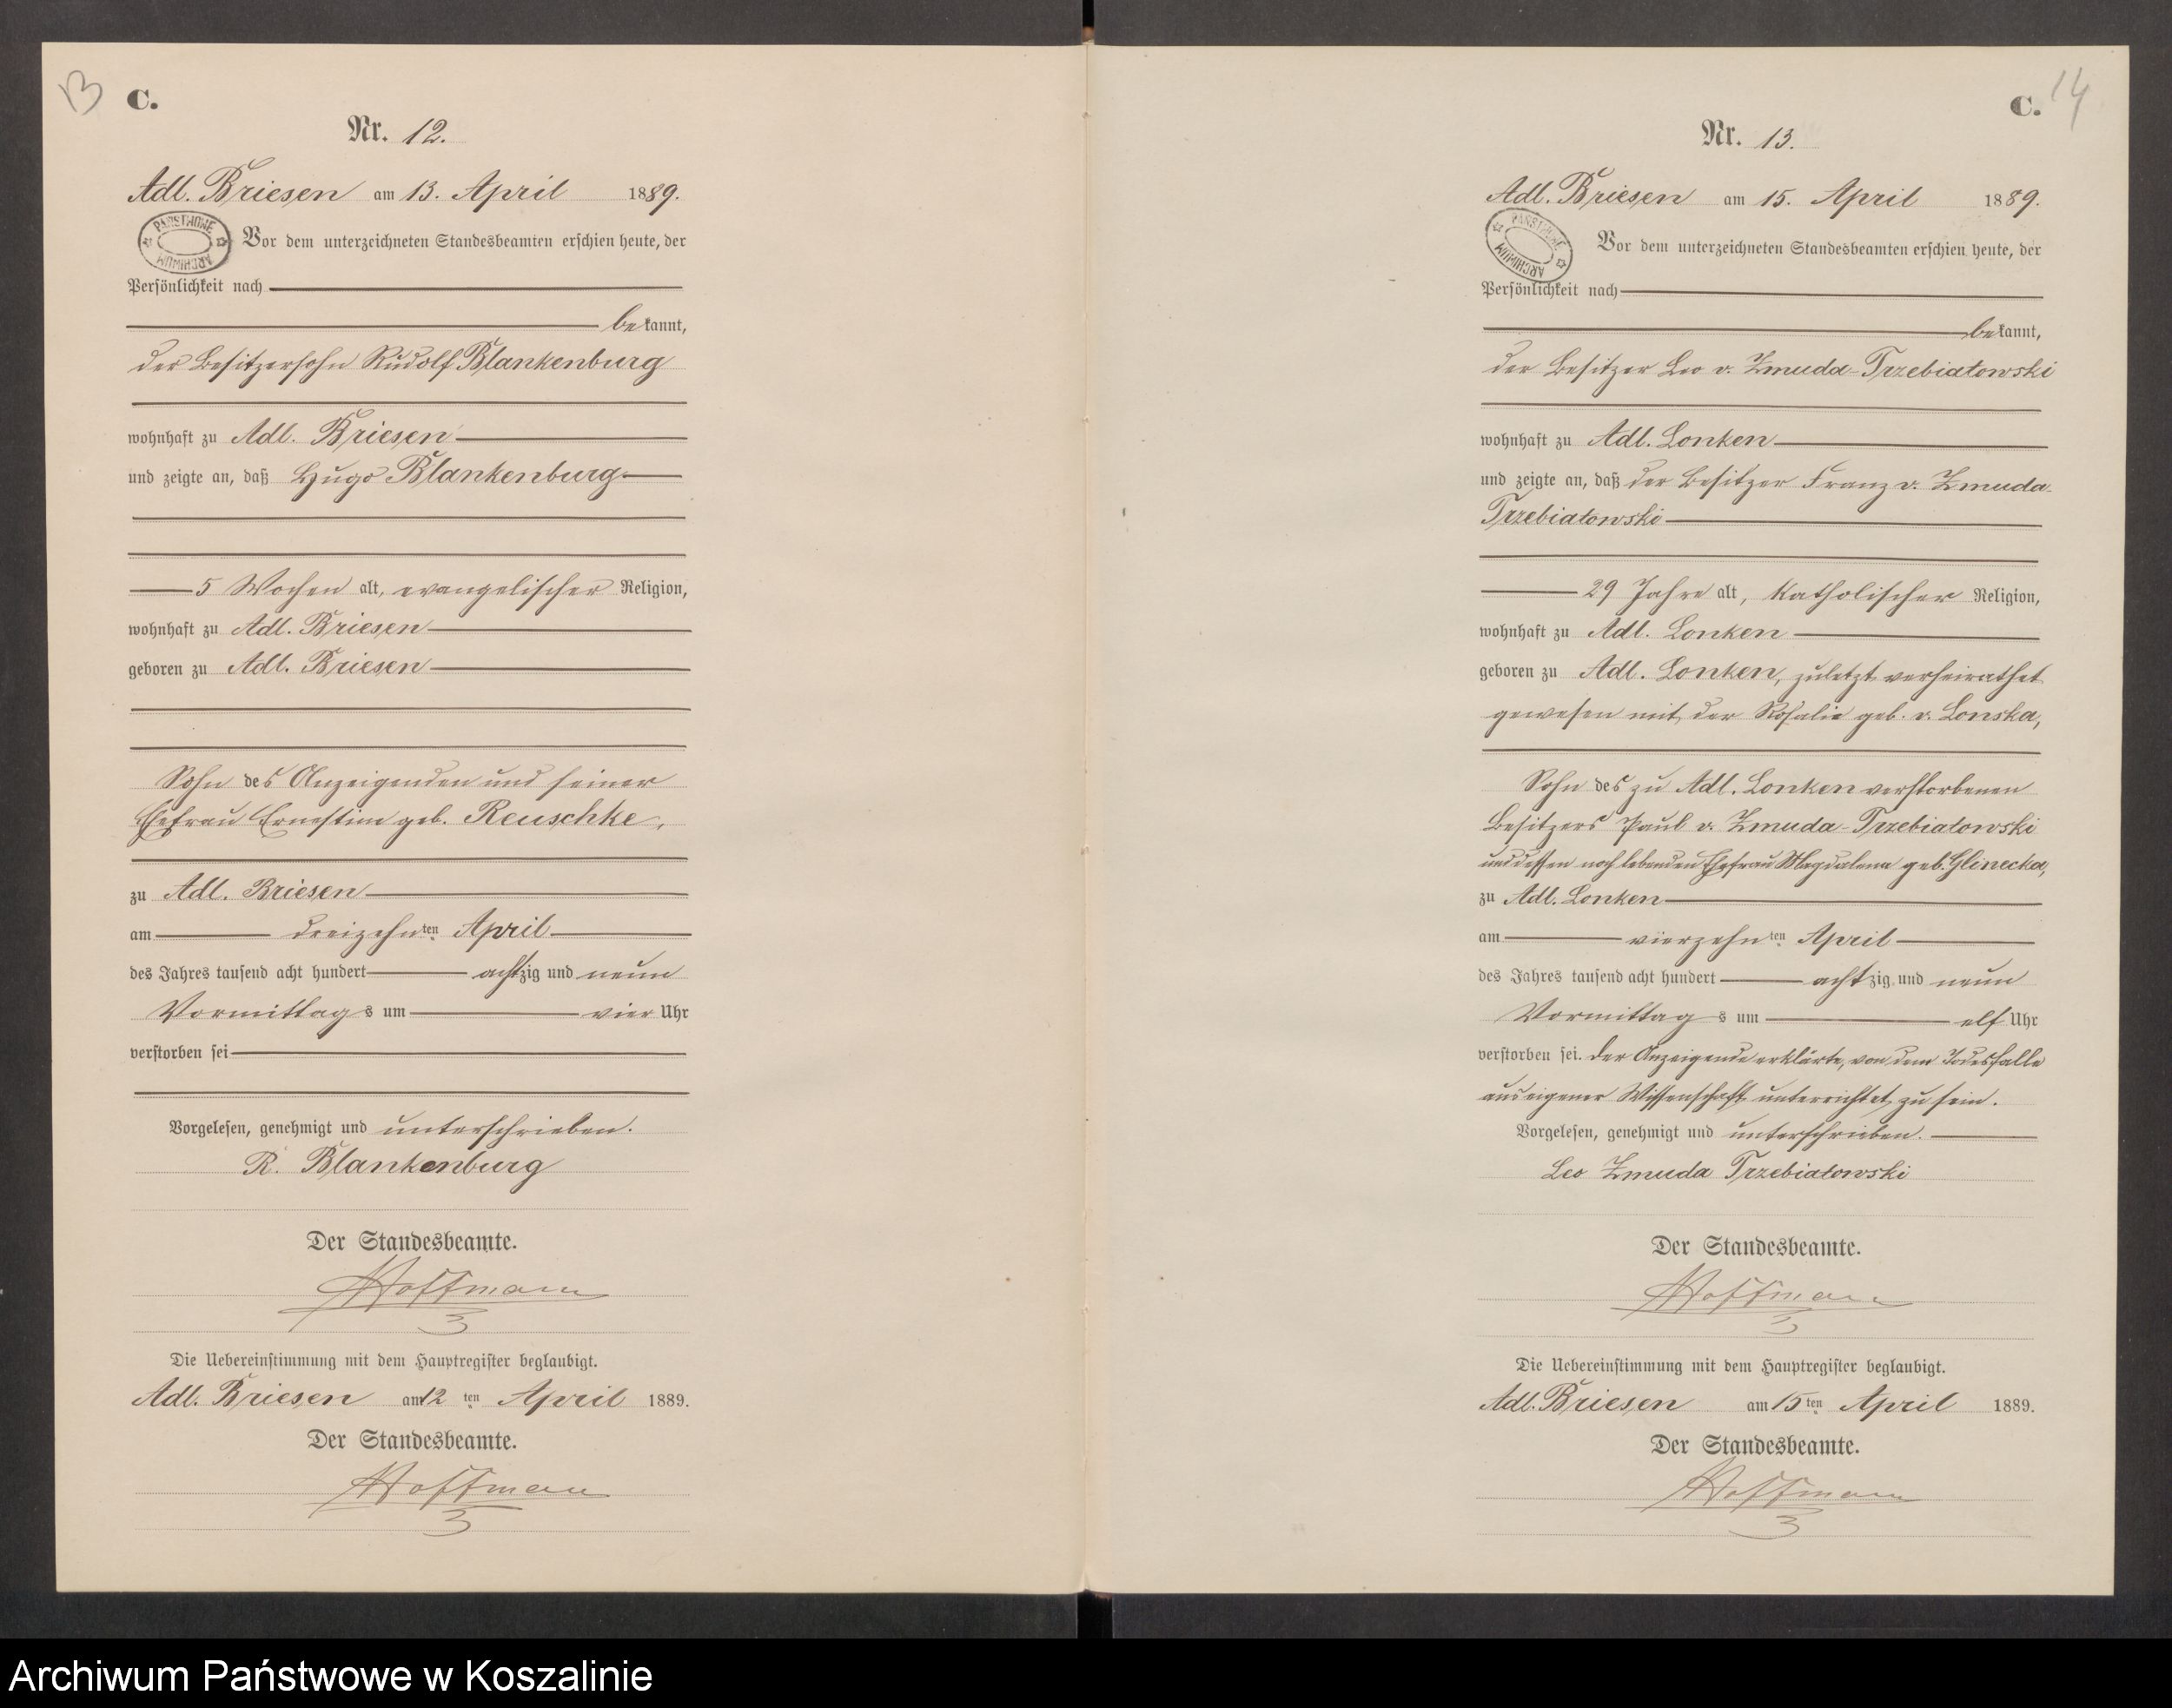 13
C.
Nr. 12.
Adl. Briesen am 13. April 1889.
PAŃSTWOWE ARCHIWUM
Vor dem unterzeichneten Standesbeamten erschien heute, der
Persönlichkeit nach
bekannt,
der Besitzersohn Rudolf Blankenburg
wohnhaft zu Adl. Briesen
und zeigte an, daß Hugo Blankenburg
5 Wochen alt, evangelischer Religion,
wohnhaft zu Adl. Briesen
geboren zu Adl. Briesen
Sohn des Anzeigenden und seiner
Ehefrau Ernestine geb. Reuschke,
zu Adl. Briesen
am dreizehnten April
des Jahres tausend acht hundert achtzig und neun
Vormittags um vier Uhr
verstorben sei
Vorgelesen, genehmigt und unterschrieben.
R. Blankenburg
Der Standesbeamte.
Hoffmann
Die Uebereinstimmung mit dem Hauptregister beglaubigt.
Adl. Briesen am 12ten April 1889.
Der Standesbeamte.
Hoffmann
14
C.
Nr. 13.
Adl. Briesen am 15. April 1889.
PAŃSTWOWE ARCHIWUM
Vor dem unterzeichneten Standesbeamten erschien heute, der
Persönlichkeit nach
bekannt,
der Besitzer Leo v. Zmuda-Trzebiatowski
wohnhaft zu Adl. Lonken
und zeigte an, daß der Besitzer Franz v. Zmuda-
Trzebiatowski
29 Jahre alt, katholischer Religion,
wohnhaft zu Adl. Lonken
geboren zu Adl. Lonken, zuletzt verheirathet
gewesen mit der Rosalie geb. v. Lonska,
Sohn des zu Adl. Lonken verstorbenen
Besitzers Paul v. Zmuda-Trzebiatowski
und dessen noch lebenden Ehefrau Magdalena geb. Glinecka,
zu Adl. Lonken
am vierzehnten April
des Jahres tausend acht hundert achtzig und neun
Vormittags um elf Uhr
verstorben sei. Der Anzeigende erklärte, von dem Todesfalle
aus eigener Wissenschaft unterrichtet zu sein.
Vorgelesen, genehmigt und unterschrieben.
Leo Zmuda Trzebiatowski
Der Standesbeamte.
Hoffmann
Die Uebereinstimmung mit dem Hauptregister beglaubigt.
Adl. Briesen am 15ten April 1889.
Der Standesbeamte.
Hoffmann
Archiwum Państwowe w Koszalinie